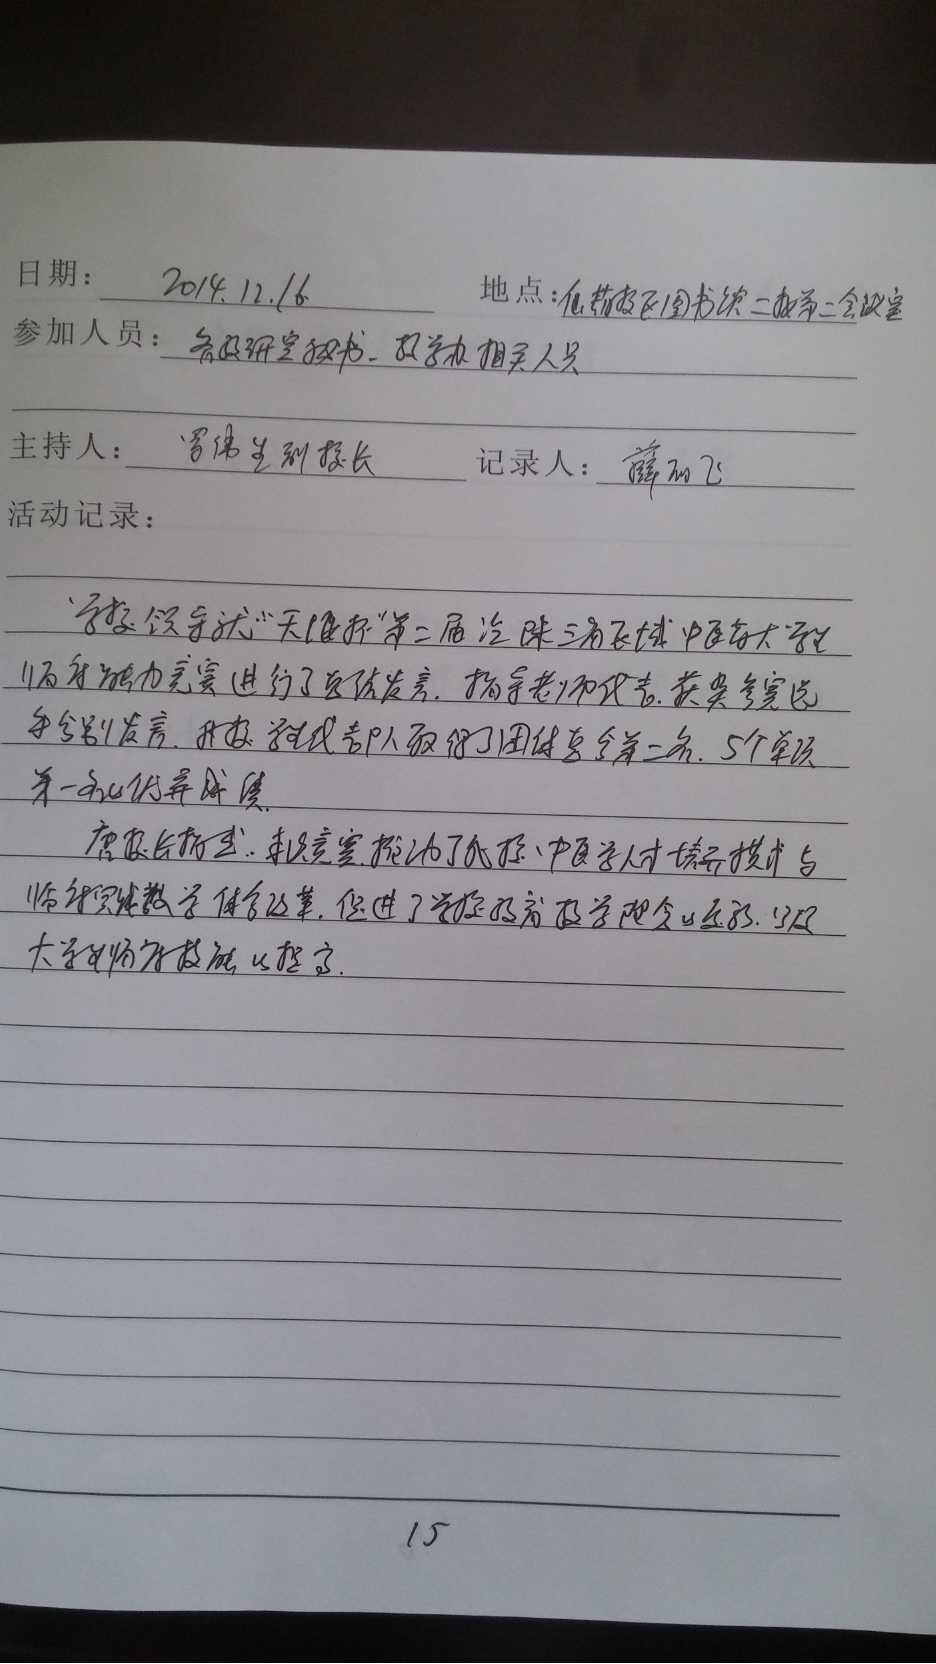 日期： 2014.12.16 地点：仙葫校区图书馆二楼第二会议室
参加人员： 各教研室秘书、教学办相关人员
主持人： 罗伟生副校长 记录人： 薛丽飞
活动记录：
学校领导就“天堰杯”第二届泛珠三角区域中医药大学生
临床能力竞赛进行了总结发言，指导老师代表、获奖参赛选
手分别发言，我校学生代表队取得了团体总分第二名、5个单项
第一名的优异成绩。
唐校长指出：本次竞赛推动了我校中医学人才培养模式与
临床实践教学体系改革，促进了学校教育教学理念的更新，以及
大学生临床技能的提高。
15